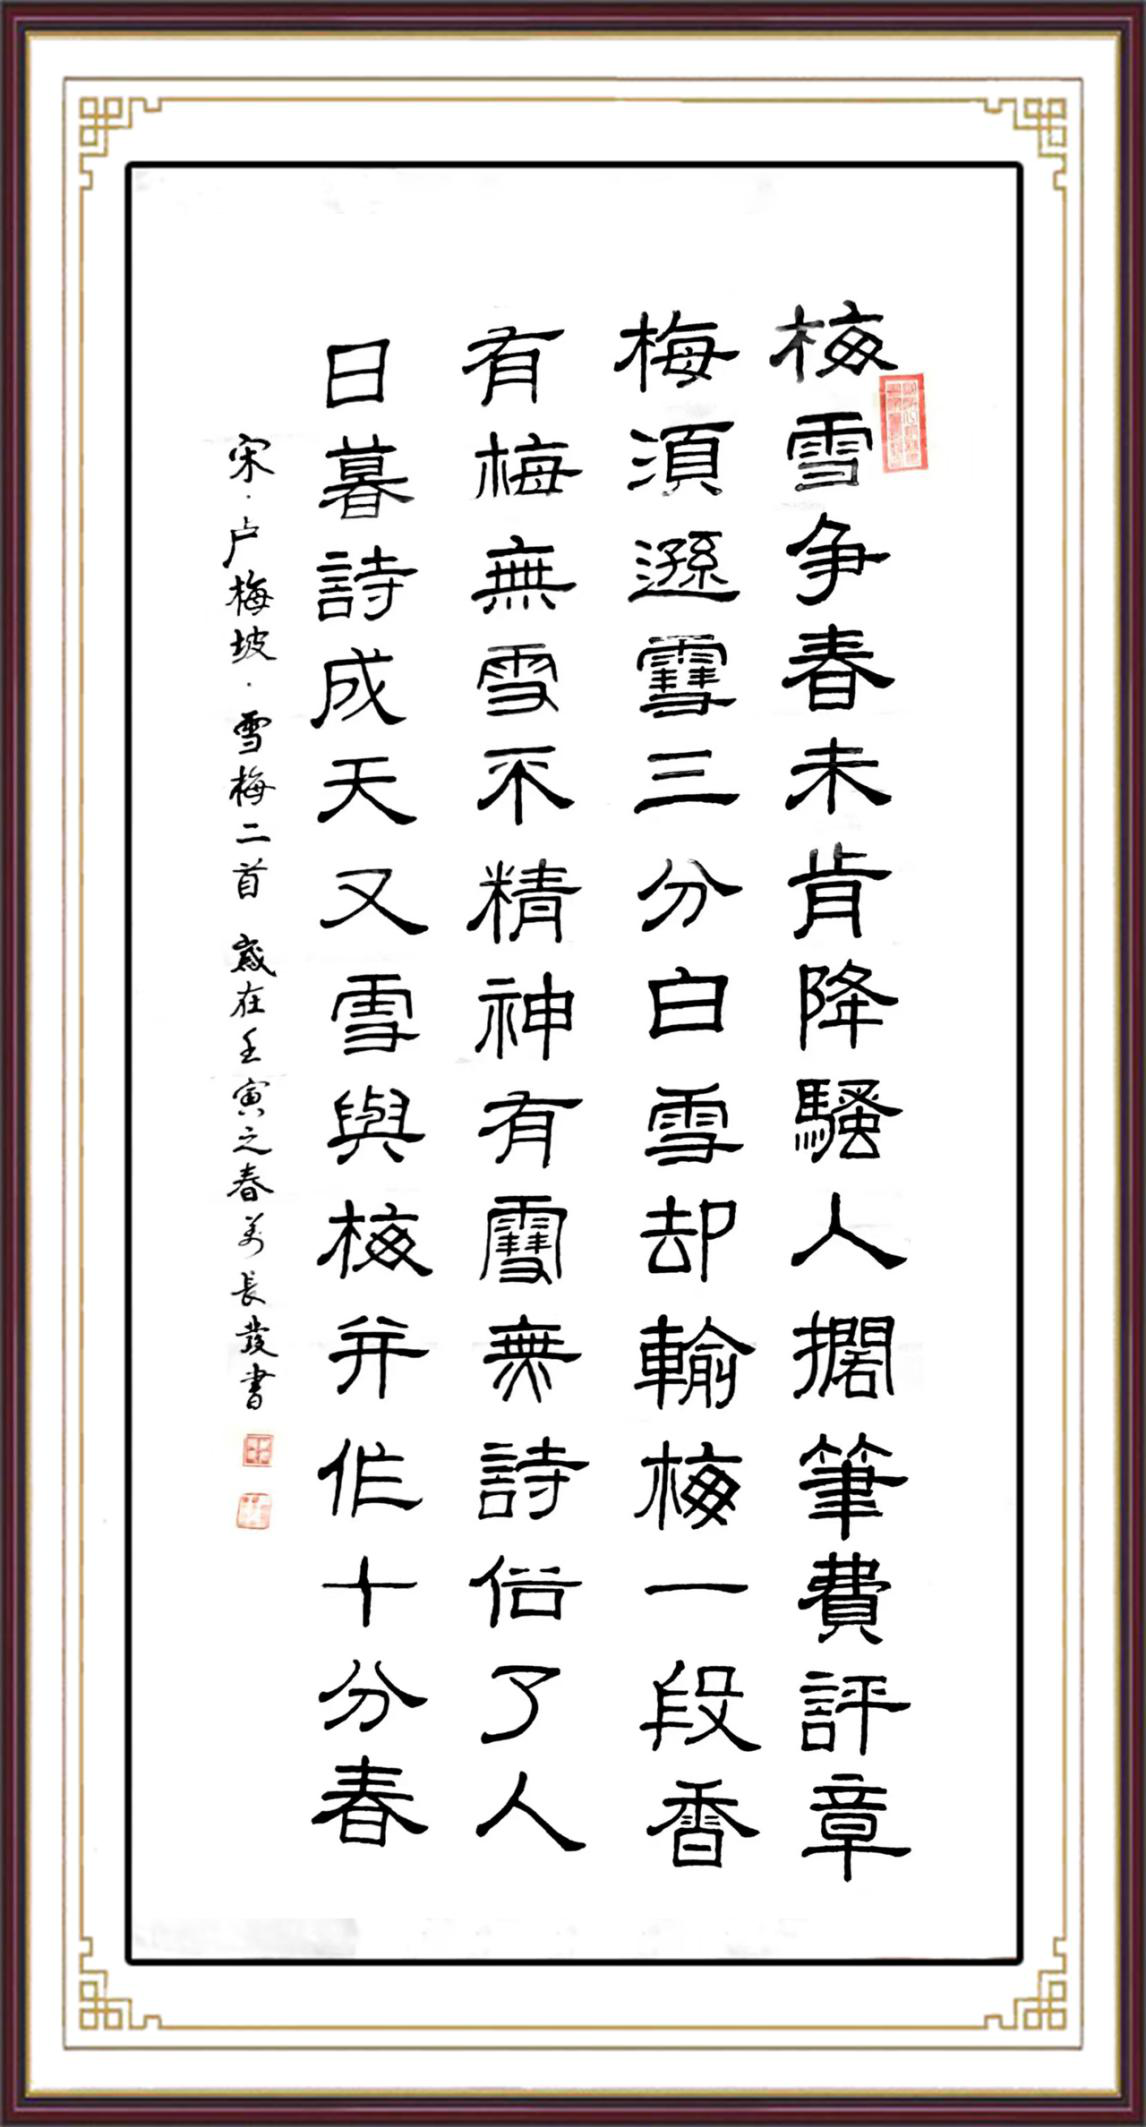 梅雪争春未肯降騷人擱筆費評章
梅須遜雪三分白雪却輸梅一段香
有梅無雪不精神有雪無詩俗了人
日暮詩成天又雪與梅并作十分春
宋·卢梅坡·雪梅二首 歲在壬寅之春萬長發書